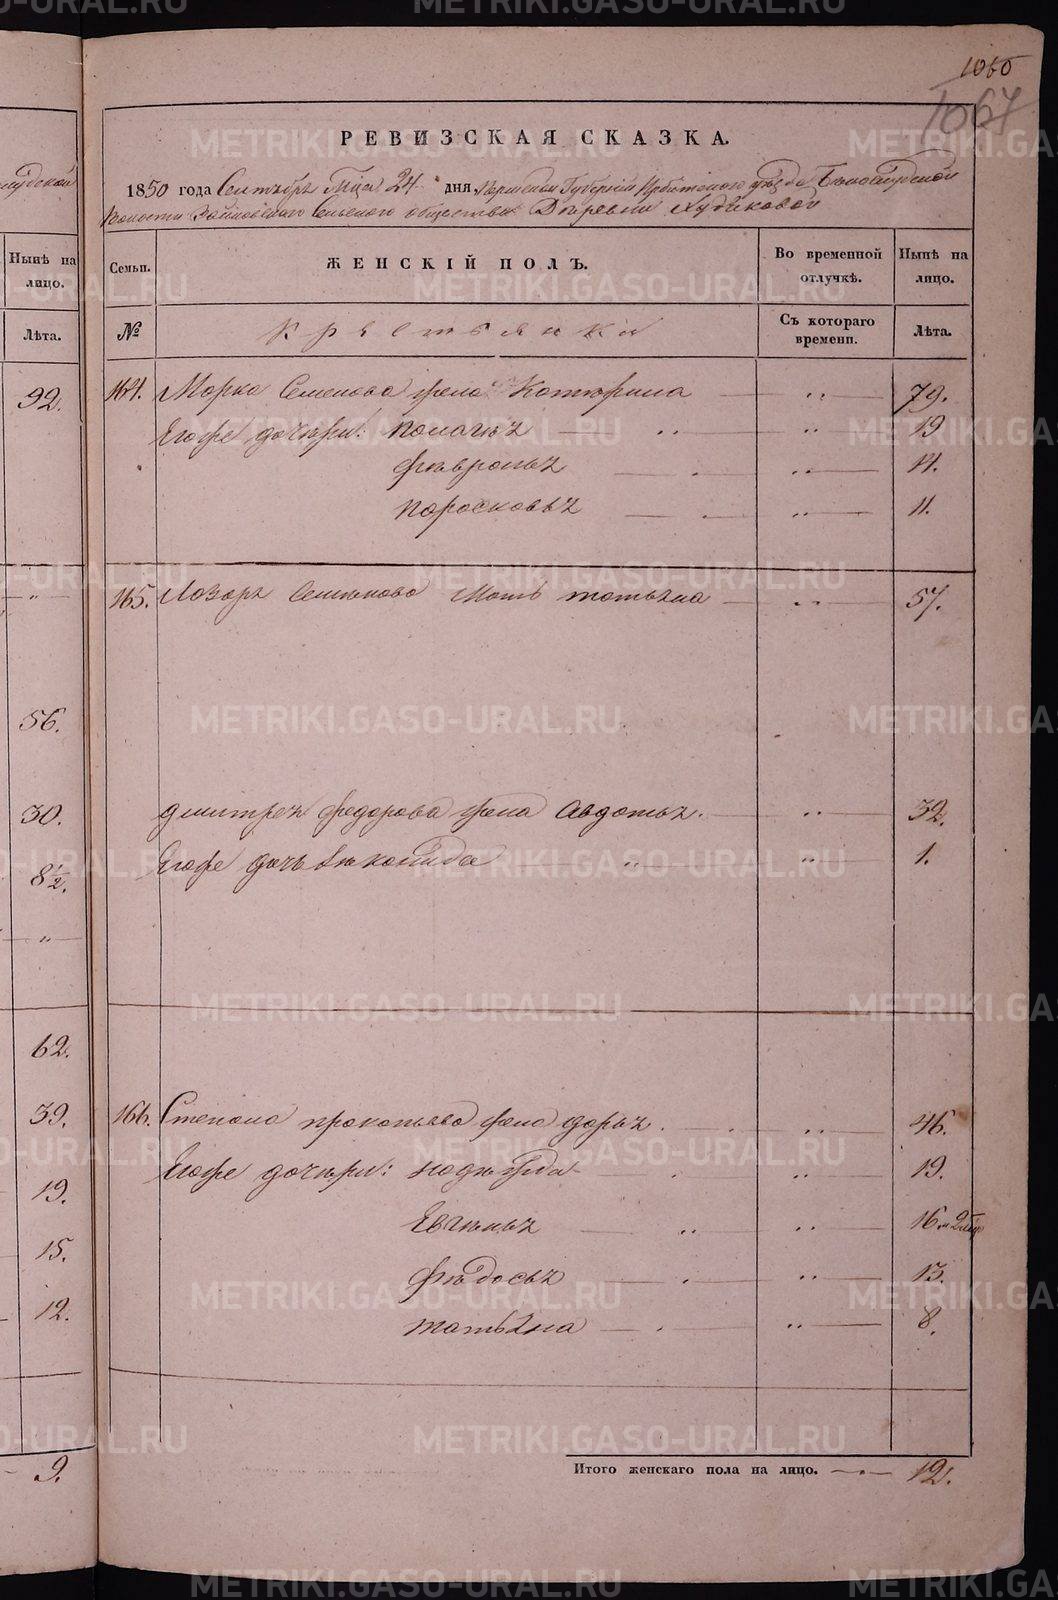 1060
1067
РЕВИЗСКАЯ СКАЗКА.
1850 года Сентября Мца 24 дня Пермской Губернiи Ирбитского уѣзда Бѣлослудской
Волости Зайковского Сельского общества Деревни Худяковой
Семьи.
ЖЕНСКІЙ ПОЛЪ.
Во временной отлучкѣ.
Нынѣ на лицо.
№
Крестьянки
Съ котораго времени.
Лѣта.
164. Марка Семенова жена Катерина 79.
Егоже дочери: Палагея 19
Февронья 14.
Парасковья 11.
165. Лазаря Семенова Мать татьяна 57.
дмитрея федорова жена Авдотья. 32.
Егоже дочь 1.
166. Степана прокопьева жена дарья. 46.
Егоже дочери: надежда 19.
Евгенья 16 и 2 мца
федосья 13.
татьяна 8.
Итого женскаго пола на лицо. 12.
Нынѣ на лицо.
Лѣта.
92.
56.
30.
8½.
62.
39.
19.
15.
12.
9.
METRIKI.GASO-URAL.RU